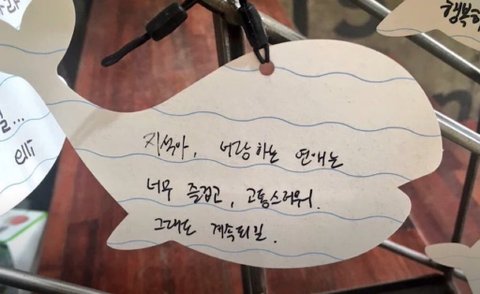 행복하
너랑 하는 연애는
너무 즐겁고, 고통스러워.
그래도 계속되길.